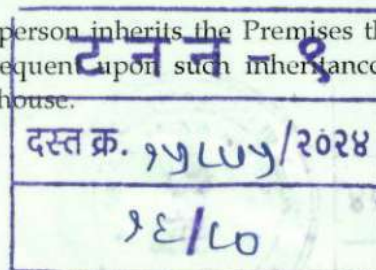 person inherits the Premises th
equent upon such inheritance
house.
ट न न - १
दस्त क्र. १५८७५/२०२४
१६/८०